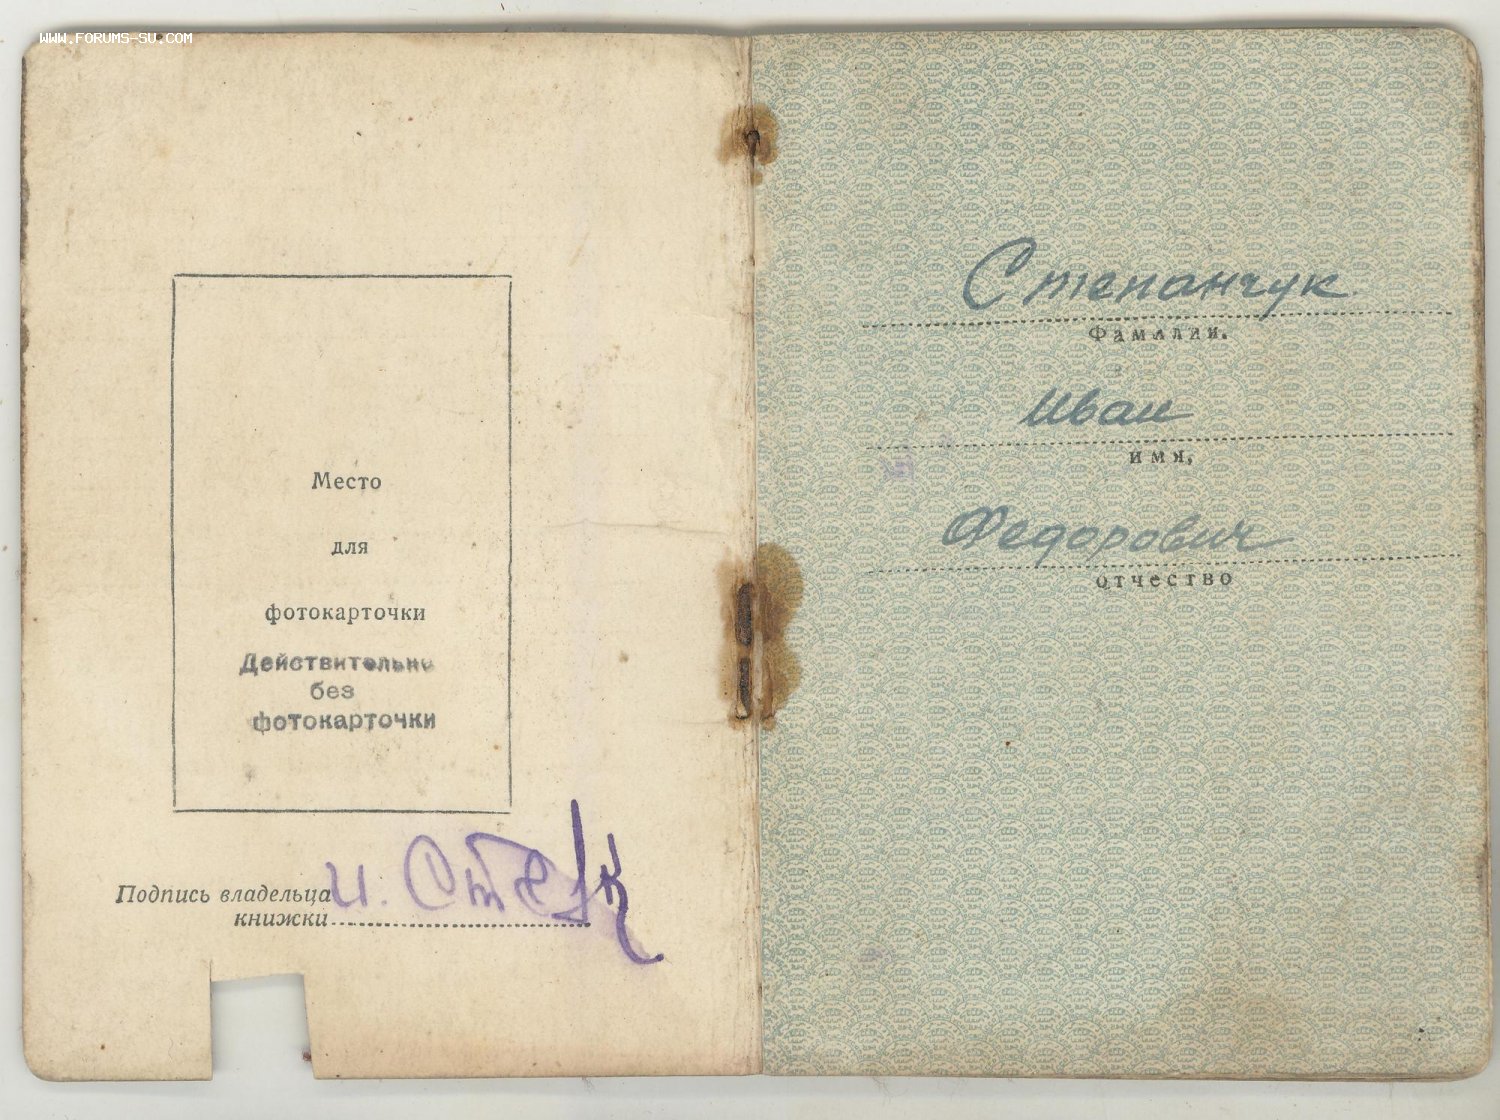 WWW.FORUMS-SU.COM
Место
для
фотокарточки
Действительно
без
фотокарточки
Подпись владельца
книжки
и. Сте
Степанчук
Фамилия.
Иван
имя,
Федорович
отчество